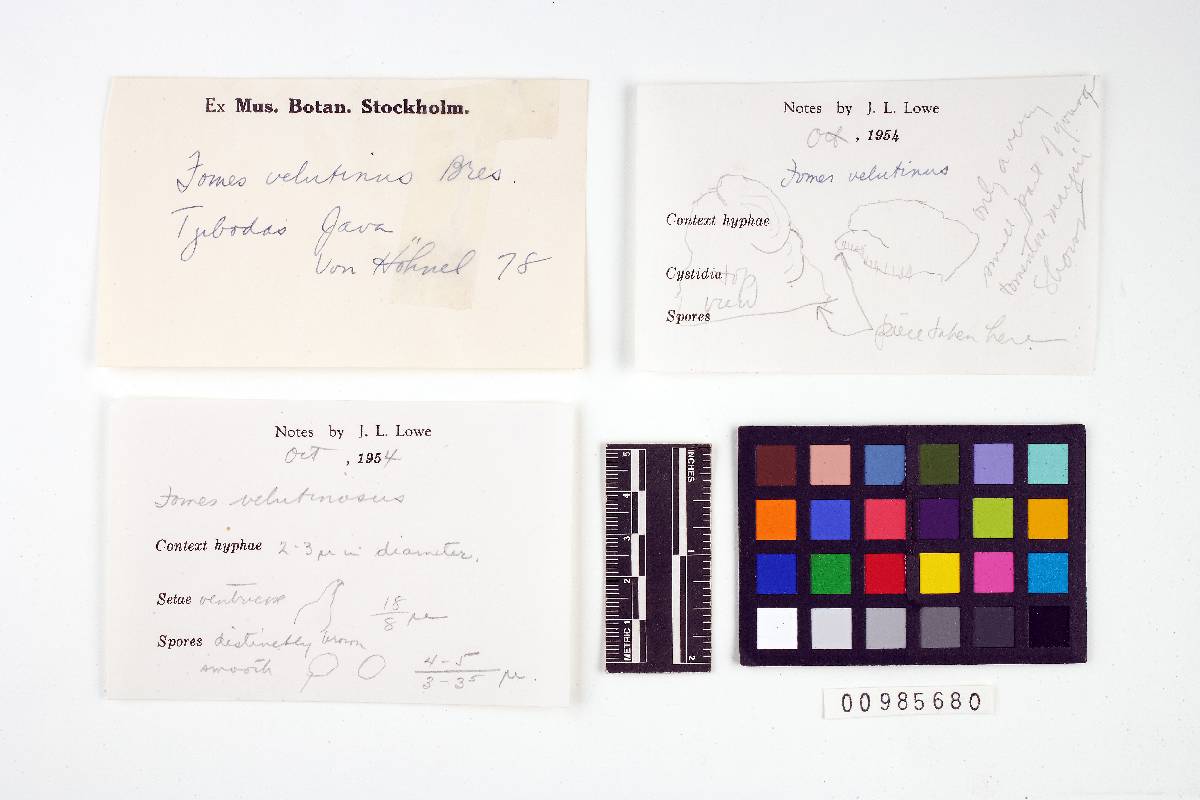 Ex Mus. Botan. Stockholm.
Fomes velutinus Bres.
Tjibodas Java
Von Höhnel 78
Notes by J. L. Lowe
Oct , 1954
Fomes velutinus
Context hyphae
Cystidia
Spores
top
view
piece taken here
only a very
small part of young
tomentose margin
shows
Notes by J. L. Lowe
Oct , 1954
Fomes velutinosus
Context hyphae 2-3 µ in diameter.
Setae ventricose 18/8 µ
Spores distinctly brown
smooth 4-5/3-3⁵ µ.
INCHES
1
2
METRIC 1
2
3
4
5
00985680